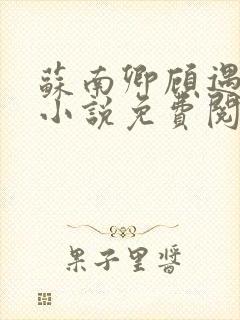 蘇南卿顾遇
小說免費閱
果子里醬